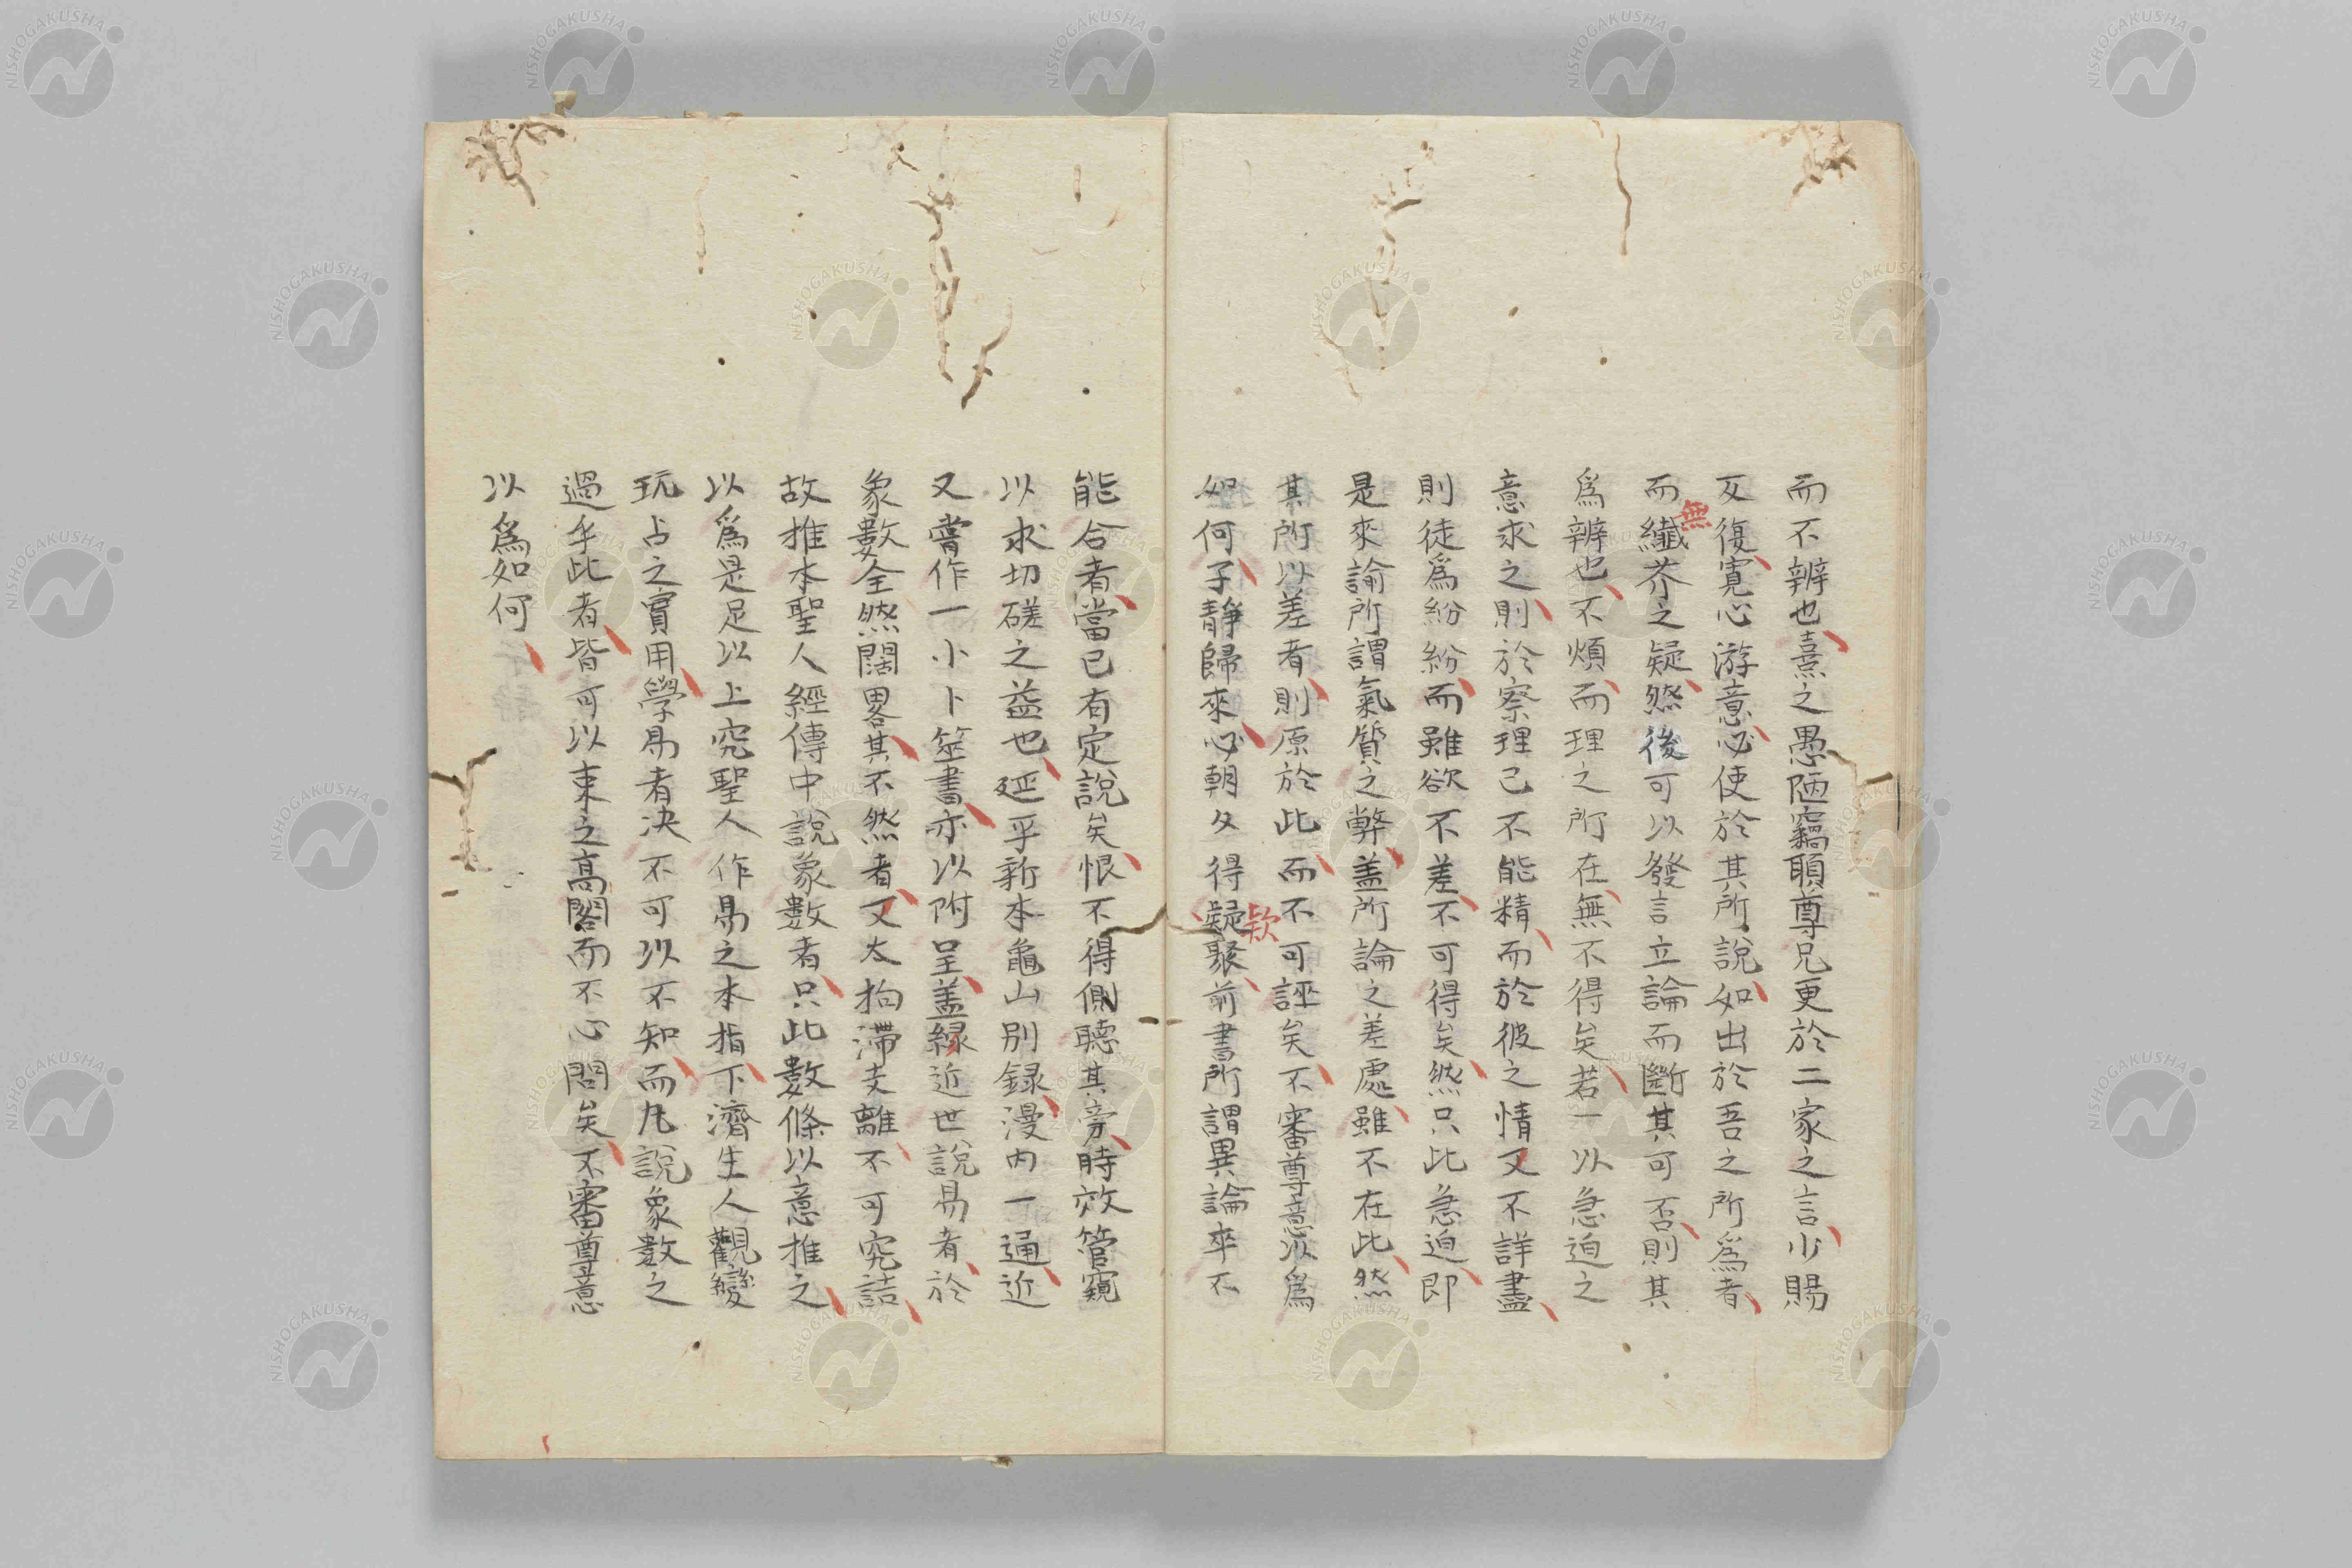 而不辨也熹之愚陋竊願尊兄更於二家之言少賜
反復寛心游意必使於其所說如出於吾之所爲者
而無纎芥之疑然後可以發言立論而斷其可否則其
爲辨也不煩而理之所在無不得矣若一以急迫之
意求之則於察理已不能精而於彼之情又不詳盡
則徒爲紛紛而雖欲不差不可得矣然只此急迫即
是來諭所謂氣質之弊盖所論之差處雖不在此然
其所以差者則原於此而不可誣矣不審尊意以爲
如何子静歸來必朝夕得疑欵聚前書所謂異論卒不
能合者當已有定說矣恨不得側聽其旁時效管窺
以求切磋之益也延平新本龜山別録漫内一通近
又嘗作一小卜筮書亦以附呈盖緑近世說易者於
象數全然闊畧其不然者又太拘滯支離不可究詰
故推本聖人經傳中說象數者只此數條以意推之
以爲是足以上究聖人作易之本指下濟生人觀變
玩占之實用學易者决不可以不知而凡說象數之
過乎此者皆可以束之髙閣而不心問矣不審尊意
以爲如何
NISHOGAKUSHA